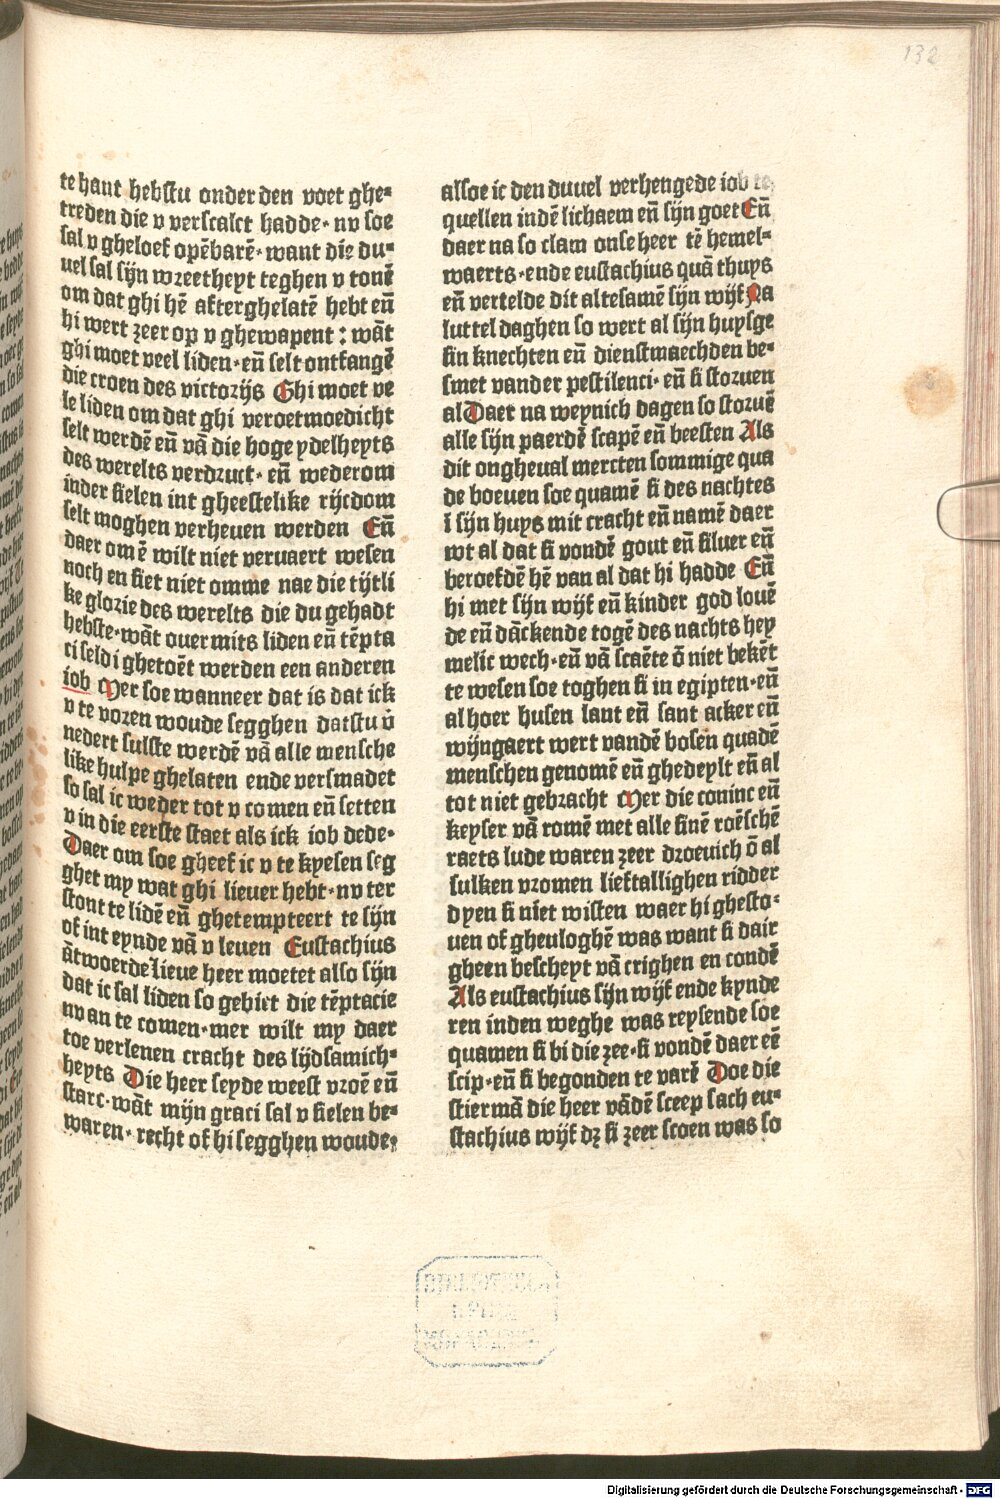 132
te hant hebstu onder den voet ghe-
treden die v verscalct hadde· nv soe
sal v gheloef opēbarē· want die du-
uel sal sijn wreetheyt teghen v tonē
om dat ghi hē afterghelatē hebt eñ
hi wert zeer op v ghewapent : wāt
ghi moet veel liden· eñ selt ontfangē
die croen des victorijs Ghi moet ve
le liden om dat ghi veroetmoedicht
selt werdē eñ vā die hoge ydelheyts
des werelts verdruct· eñ wederom
inder sielen int gheestelike rijcdom
selt moghen verheuen werden Eñ
daer omē wilt niet veruaert wesen
noch en siet niet omme nae die tijtli
ke glorie des werelts die du gehadt
hebste· wāt ouermits liden eñ tēpta
ci seldi ghetoēt werden een anderen
iob Mer soe wanneer dat is dat ick
v te voren woude segghen datstu v̇
nedert sulste werdē vā alle mensche
like hulpe ghelaten ende versmadet
so sal ic weder tot v comen eñ setten
v in die eerste staet als ick iob dede·
Daer om soe gheef ic v te kyesen seg
ghet my wat ghi lieuer hebt· nv ter
stont te lidē eñ ghetempteert te sijn
of int eynde vā v leuen Eustachius
ātwoerde lieue heer moetet also sijn
dat ic sal liden so gebiet die tēptacie
nv an te comen· mer wilt my daer
toe verlenen cracht des lijdsamich-
heyts Die heer seyde weest vroē eñ
starc· wāt mijn graci sal v sielen be-
waren· recht of hi segghen woude:
alsoe ic den duuel verhengede iob te
quellen indē lichaem eñ sijn goet Eñ
daer na so clam onse heer tē hemel-
waerts· ende eustachius quā thuys
eñ vertelde dit altesamē sijn wijf Na
luttel daghen so wert al sijn huysge
sin knechten eñ dienstmaechden be-
smet vander pestilenci· eñ si storuen
al Daer na weynich dagen so storuē
alle sijn paerdē scapē eñ beesten Als
dit ongheual mercten sommige qua
de boeuen soe quamē si des nachtes
ī sijn huys mit cracht eñ namē daer
wt al dat si vondē gout eñ siluer eñ
beroefdē hē van al dat hi hadde Eñ
hi met sijn wijf eñ kinder god louē
de eñ dāckende togē des nachts hey
melic wech· eñ vā scaēte ō niet bekēt
te wesen soe toghen si in egipten· eñ
al hoer husen lant eñ sant acker eñ
wijngaert wert vandē bosen quadē
menschen genomē eñ ghedeylt eñ al
tot niet gebracht Mer die coninc eñ
keyser vā romē met alle sinē roēschē
raets lude waren zeer droeuich ō al
sulken vromen lieftallighen ridder
dyen si niet wisten waer hi ghesto-
uen of gheuloghē was want si dair
gheen bescheyt vā crighen en condē
Als eustachius sijn wijf ende kynde
ren inden weghe was reysende soe
quamen si bi die zee· si vondē daer eē
scip· eñ si begonden te varē Doe die
stiermā die heer vādē sceep sach eu-
stachius wijf dz si zeer scoen was so
Digitalisierung gefördert durch die Deutsche Forschungsgemeinschaft - DFG